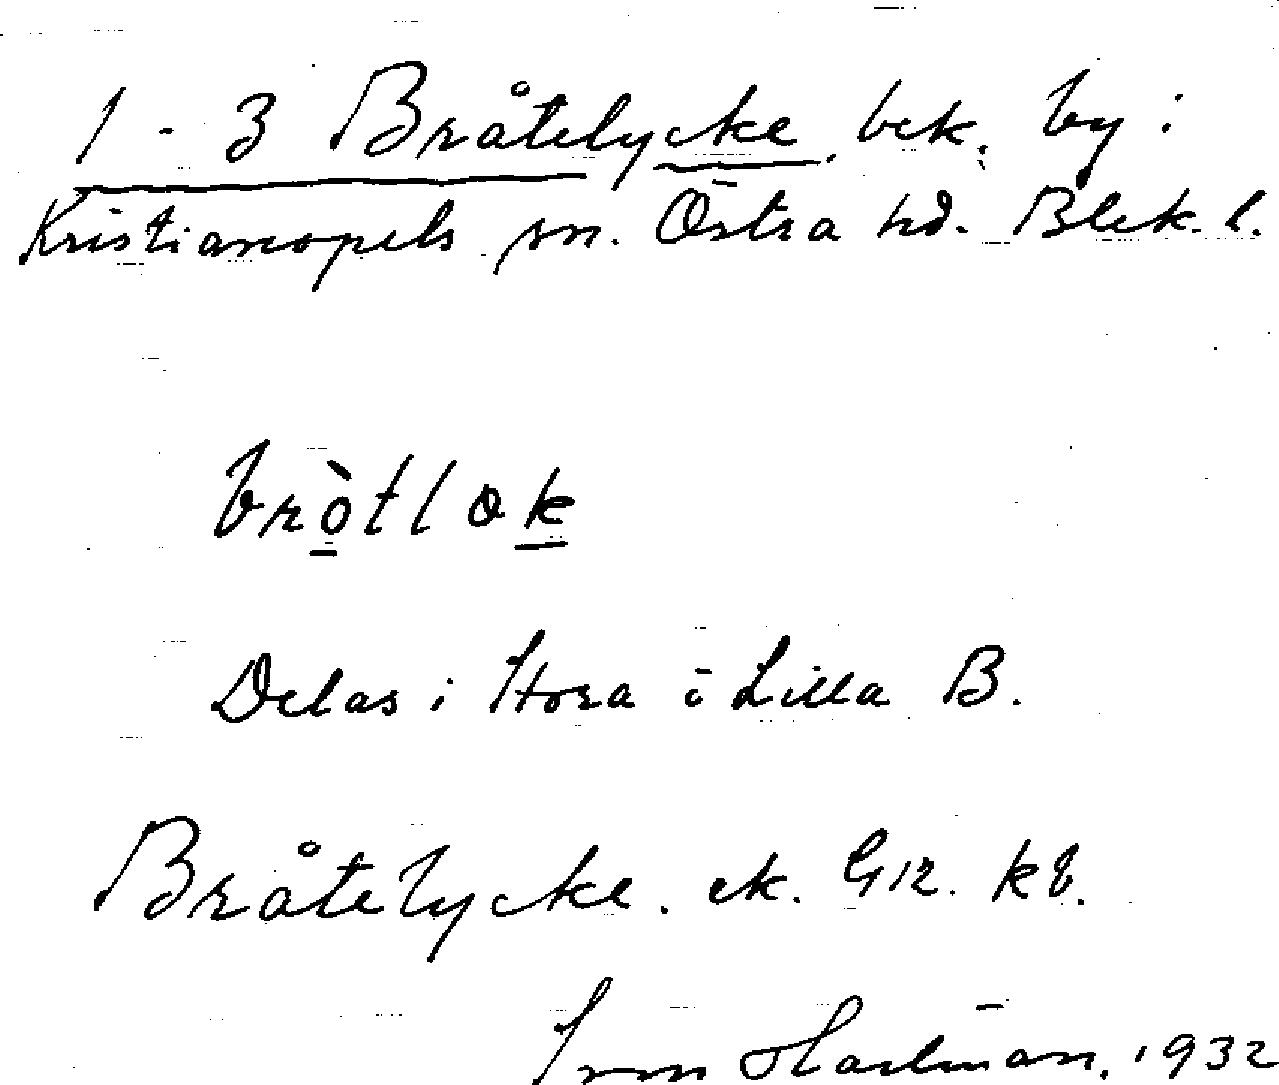 1 - 3 Bråtelycke, bek. by i
Kristianopels sn. Östra hd. Blek. l.
bròtlək
Delas i Stora o Lilla B.
Bråtelycke. ek. GR. kb.
Hartman. 1932